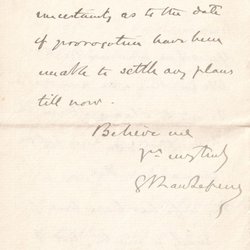 uncertainty as to the date
of prorogation have been
unable to settle any plans
till now.
Believe me
yrs very truly